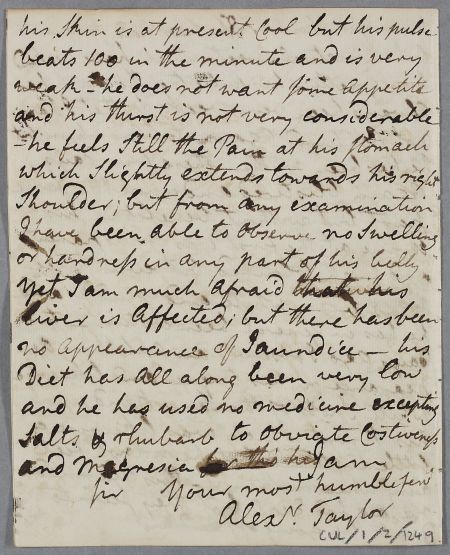 his Skin is at present Cool but his pulse
beats 100 in the minute and is very
weak - he does not want some appetite
and his thirst is not very considerable
- he feels Still the Pain at his stomach
which Slightly extends towards his right
Shoulder; but from any examination
I have been able to observe no Swelling
or hardness in any part of his belly
yet I am much afraid that his
liver is Affected; but there has been
no Appearance of Jaundice - his
Diet has all along been very low
and he has used no medicine excepting
Salts & rhubarb to obviate Costiveness
and Magnesia I am
Sir Your most humble serv
Alexr. Taylor
CUL/1/2/1249